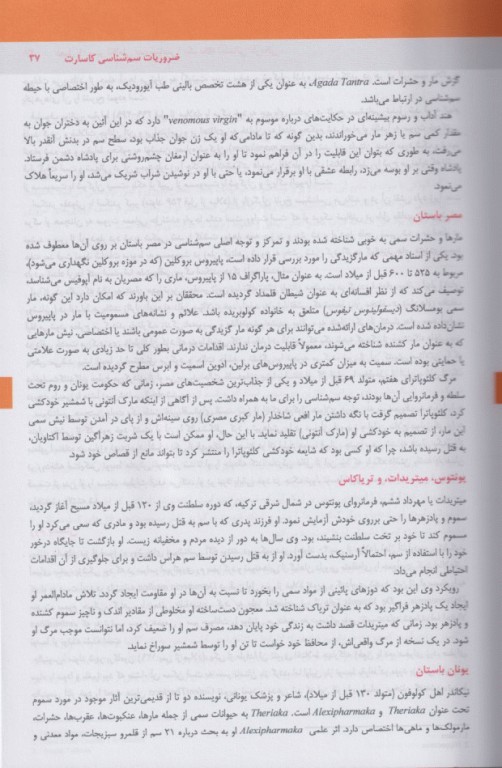 ضروریات سم‌شناسی کاسارت ۳۷
گزش مار و حشرات است. Agada Tantra، به عنوان یکی از هشت تخصص بالینی طب آیورودیک، به طور اختصاصی با حیطه
سم‌شناسی در ارتباط می‌باشد.
هند آداب و رسوم پیشینه‌ای در حکایت‌های درباره موسوم به "venomous virgin" دارد که در این آئین به دختران جوان به
مقدار کمی سم یا زهر مار می‌خوراندند، بدین گونه که تا مادامی‌که او یک زن جوان جذاب بود، سطح سم در بدنش آنقدر بالا
می‌رفت، به طوری که بتوان این قابلیت را در آن فراهم نمود تا او را به عنوان ارمغان چشم‌روشنی برای پادشاه دشمن فرستاد.
پادشاه وقتی بر او بوسه می‌زد، رابطه عشقی با او برقرار می‌نمود، یا حتی با او در نوشیدن شراب شریک می‌شد، او را سریعاً هلاک
می‌نمود.
مصر باستان
مارها و حشرات سمی به خوبی شناخته شده بودند و تمرکز و توجه اصلی سم‌شناسی در مصر باستان بر روی آن‌ها معطوف شده
بود. یکی از اسناد مهمی که مارگزیدگی را مورد بررسی قرار داده است، پاپیروس بروکلین (که در موزه بروکلین نگهداری می‌شود)،
مربوط به ۵۲۵ تا ۶۰۰ قبل از میلاد است. به عنوان مثال، پاراگراف ۱۵ از پاپیروس، ماری را که مصریان به نام آپوفیس می‌شناسند،
توصیف می‌کند که از نظر افسانه‌ای به عنوان شیطان قلمداد گردیده است. محققان بر این باورند که امکان دارد این گونه، مار
سمی بومسلانگ (دیسفولیدوس تیفوس) متلعق به خانواده کولوبریده باشد. علائم و نشانه‌های مسمومیت با مار در پاپیروس
نشان‌داده شده است. درمان‌های ارائه‌شده می‌توانند برای هر گونه مار گزیدگی به صورت عمومی باشند یا اختصاصی، نیش مارهایی
که به عنوان مار کشنده شناخته می‌شوند، معمولاً قابلیت درمان ندارند. اقدامات درمانی بطور کلی تا حد زیادی به صورت علامتی
یا حمایتی بوده است. سمیت به میزان کمتری در پاپیروس‌های برلین، ادوین اسمیت و ابرس مطرح گردیده است.
مرگ کلئوپاترای هفتم، متولد ۶۹ قبل از میلاد و یکی از جذاب‌ترین شخصیت‌های مصر، زمانی که حکومت یونان و روم تحت
سلطه و فرمانروایی آن‌ها بودند، توجه سم‌شناسی را برای ما به همراه داشت. پس از آگاهی از اینکه مارک آنتونی با شمشیر خودکشی
کرد، کلئوپاترا تصمیم گرفت با نگه داشتن مار افعی شاخدار (مار کبری مصری) روی سینه‌اش و از پای در آمدن توسط نیش سمی
این مار، از تصمیم به خودکشی او (مارک آنتونی) تقلید نماید. با این حال، او ممکن است با یک شربت زهرآگین توسط اکتاویان،
به قتل رسیده باشد، چرا که او کسی بود که شایعه خودکشی کلئوپاترا را منتشر کرد تا بتواند مانع از قصاص خود شود.
پونتوس، میتریدات، و تریاکاس
میتریدات یا مهرداد ششم، فرمانروای پونتوس در شمال شرقی ترکیه، که دوره سلطنت وی از ۱۳۰ قبل از میلاد مسیح آغاز گردید،
سموم و پادزهرها را حتی برروی خودش آزمایش نمود. او فرزند پدری که با سم به قتل رسیده بود و مادری که سعی می‌کرد او را
مسموم کند تا خود بر تخت سلطنت بنشیند، بود. وی سال‌ها به دور از دیده مردم و مخفیانه زیست. او بازگشت تا جایگاه درخور
خود را با استفاده از سم، احتمالاً آرسنیک، بدست آورد. او از به قتل رسیدن توسط سم هراس داشت و برای جلوگیری از آن اقدامات
احتیاطی انجام می‌داد.
رویکرد وی این بود که دوزهای پائینی از مواد سمی را بخورد تا نسبت به آن‌ها در او مقاومت ایجاد گردد. تلاش مادام‌العمر او
ایجاد یک پادزهر فراگیر بود که به عنوان تریاک شناخته شد. معجون دست‌ساخته او مخلوطی از مقادیر اندک و ناچیز سموم کشنده
و پادزهر بود. زمانی که میتریدات قصد داشت به زندگی خود پایان دهد، مصرف سم او را ضعیف کرد، اما نتوانست موجب مرگ او
شود. در یک نسخه از مرگ واقعی‌اش، از محافظ خود خواست تا تن او را توسط شمشیر سوراخ نماید.
یونان باستان
نیکاندر اهل کولوفون (متولد ۱۳۰ قبل از میلاد)، شاعر و پزشک یونانی، نویسنده دو تا از قدیمی‌ترین آثار موجود در مورد سموم
تحت عنوان Theriaka و Alexipharmaka است. Theriaka به حیوانات سمی از جمله مارها، عنکبوت‌ها، عقرب‌ها، حشرات،
مارمولک‌ها و ماهی‌ها اختصاص دارد. اثر علمی Alexipharmaka او به بحث درباره ۲۱ سم از قلمرو سبزیجات، مواد معدنی و